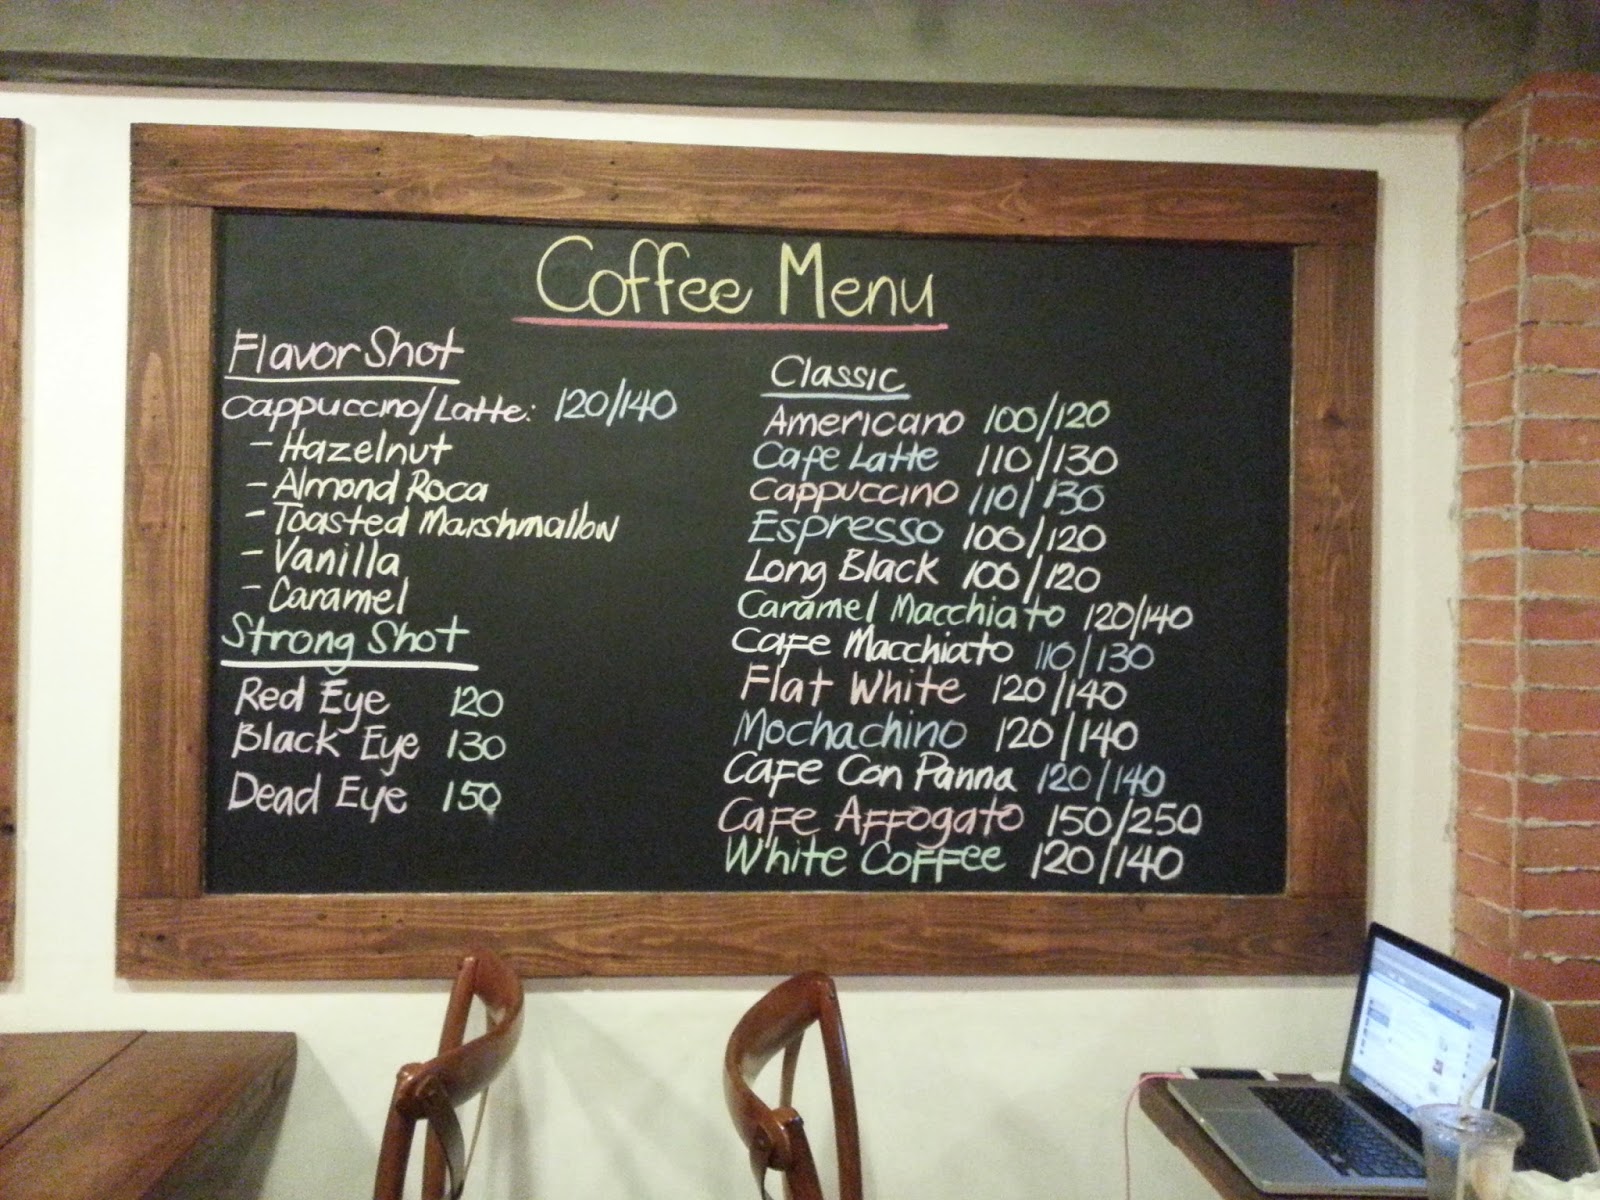 Coffee Menu
Flavor Shot
Cappuccino/Latte: 120/140
- Hazelnut
- Almond Roca
- Toasted Marshmallow
- Vanilla
- Caramel
Strong Shot
Red Eye 120
Black Eye 130
Dead Eye 150
Classic
Americano 100/120
Cafe Latte 110/130
Cappuccino 110/130
Espresso 100/120
Long Black 100/120
Caramel Macchiato 120/140
Cafe Macchiato 110/130
Flat White 120/140
Mochachino 120/140
Cafe Con Panna 120/140
Cafe Affogato 150/250
White Coffee 120/140